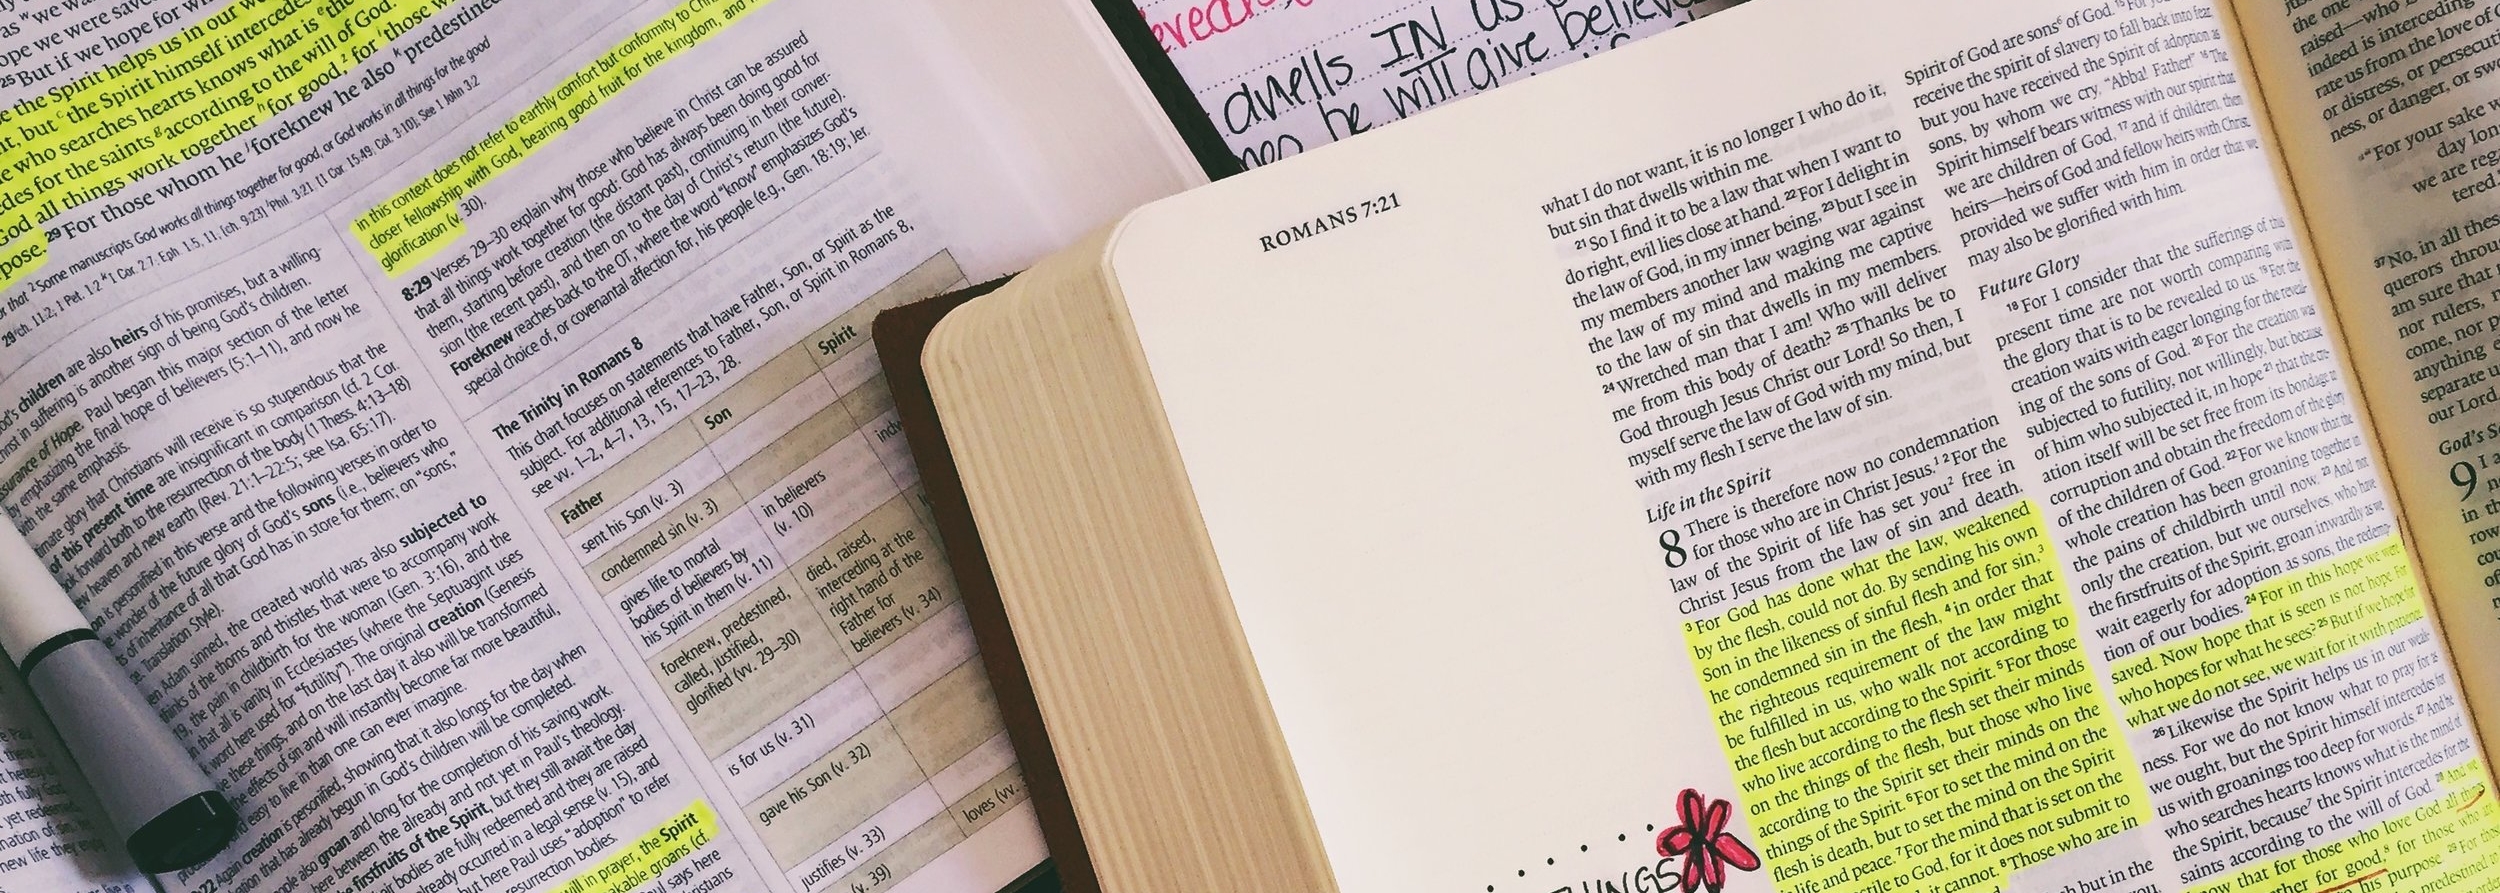 as "we wa
ope we were save
25 But if we hope for wh
e the Spirit helps us in our w
nt, but the Spirit himself intercedes
e who searches hearts knows what is the
edes for the saints according to the will of God.
God all things work together for good, for those w
pose. 29 For those whom he foreknew he also predestined
or that 2 Some manuscripts God works all things together for good, or God works in all things for the good
God's children are also heirs of his promises, but a willing-
Christ in suffering is another sign of being God's children.
surance of Hope. Paul began this major section of the letter
by emphasizing the final hope of believers (5:1–11), and now he
with the same emphasis.
timate glory that Christians will receive is so stupendous that the
of this present time are insignificant in comparison (cf. 2 Cor.
ok forward both to the resurrection of the body (1 Thess. 4:13–18)
heaven and new earth (Rev. 21:1–22:5; see Isa. 65:17).
on is personified in this verse and the following verses in order to
wonder of the future glory of God's sons (i.e., believers who
s of inheritance of all that God has in store for them; on "sons,"
Translation Style).
en Adam sinned, the created world was also subjected to
thinks of the thorns and thistles that were to accompany work
19, the pain in childbirth for the woman (Gen. 3:16), and the
n that all is vanity in Ecclesiastes (where the Septuagint uses
word here used for "futility"). The original creation (Genesis
e these things, and on the last day it also will be transformed
the effects of sin and will instantly become far more beautiful,
and easy to live in than one can ever imagine.
Again creation is personified, showing that it also longs for the day when
already begun in God's children will be completed.
also groan and long for the completion of his saving work.
here between the already and not yet in Paul's theology.
firstfruits of the Spirit, but they still await the day
bodies are fully redeemed and they are raised
already occurred in a legal sense (v. 15), and
but here Paul uses "adoption" to refer
resurrection bodies.
will in prayer, the Spirit
akable groans (cf.
ul says here
ristians
in this context does not refer to earthly comfort but conformity to Chri
closer fellowship with God, bearing good fruit for the kingdom, and
glorification (v. 30).
8:29 Verses 29–30 explain why those who believe in Christ can be assured
that all things work together for good: God has always been doing good for
them, starting before creation (the distant past), continuing in their conver-
sion (the recent past), and then on to the day of Christ's return (the future).
Foreknew reaches back to the OT, where the word "know" emphasizes God's
special choice of, or covenantal affection for, his people (e.g., Gen. 18:19; Jer.
The Trinity in Romans 8
This chart focuses on statements that have Father, Son, or Spirit as the
subject. For additional references to Father, Son, or Spirit in Romans 8,
see vv. 1–2, 4–7, 13, 15, 17–23, 28.
Father
Son
Spirit
sent his Son (v. 3)
condemned sin (v. 3)
in believers
(v. 10)
gives life to mortal
bodies of believers by
his Spirit in them (v. 11)
died, raised,
interceding at the
right hand of the
Father for
believers (v. 34)
foreknew, predestined,
called, justified,
glorified (vv. 29–30)
is for us (v. 31)
gave his Son (v. 32)
loves (vv.
justifies (v. 33)
v. 39)
dwells IN us
he will give believe
ROMANS 7:21
what I do not want, it is no longer I who do it,
but sin that dwells within me.
21 So I find it to be a law that when I want to
do right, evil lies close at hand. 22 For I delight in
the law of God, in my inner being, 23 but I see in
my members another law waging war against
the law of my mind and making me captive
to the law of sin that dwells in my members.
24 Wretched man that I am! Who will deliver
me from this body of death? 25 Thanks be to
God through Jesus Christ our Lord! So then, I
myself serve the law of God with my mind, but
with my flesh I serve the law of sin.
Life in the Spirit
8 There is therefore now no condemnation
for those who are in Christ Jesus.1 2 For the
law of the Spirit of life has set you2 free in
Christ Jesus from the law of sin and death.
3 For God has done what the law, weakened
by the flesh, could not do. By sending his own
Son in the likeness of sinful flesh and for sin,3
he condemned sin in the flesh, 4 in order that
the righteous requirement of the law might
be fulfilled in us, who walk not according to
the flesh but according to the Spirit. 5 For those
who live according to the flesh set their minds
on the things of the flesh, but those who live
according to the Spirit set their minds on the
things of the Spirit. 6 For to set the mind on the
flesh is death, but to set the mind on the Spirit
is life and peace. 7 For the mind that is set on the
stile to God, for it does not submit to
it cannot. 8 Those who are in
THINGS
Spirit of God are sons6 of God. 15 For you
receive the spirit of slavery to fall back into fear,
but you have received the Spirit of adoption as
sons, by whom we cry, "Abba! Father!" 16 The
Spirit himself bears witness with our spirit that
we are children of God, 17 and if children, then
heirs—heirs of God and fellow heirs with Christ,
provided we suffer with him in order that we
may also be glorified with him.
Future Glory
18 For I consider that the sufferings of this
present time are not worth comparing with
the glory that is to be revealed to us. 19 For the
creation waits with eager longing for the reveal-
ing of the sons of God. 20 For the creation was
subjected to futility, not willingly, but because
of him who subjected it, in hope 21 that the cre-
ation itself will be set free from its bondage to
corruption and obtain the freedom of the glory
of the children of God. 22 For we know that the
whole creation has been groaning together in
the pains of childbirth until now. 23 And not
only the creation, but we ourselves, who have
the firstfruits of the Spirit, groan inwardly as we
wait eagerly for adoption as sons, the redemp-
tion of our bodies. 24 For in this hope we were
saved. Now hope that is seen is not hope. For
who hopes for what he sees? 25 But if we hope for
what we do not see, we wait for it with patience.
26 Likewise the Spirit helps us in our weak-
ness. For we do not know what to pray for as
we ought, but the Spirit himself intercedes for
us with groanings too deep for words. 27 And he
who searches hearts knows what is the mind of
the Spirit, because7 the Spirit intercedes for the
saints according to the will of God. 28 And we
now that for those who love God all things
ther for good,8 for those who are
his purpose. 29 For those
predestined
the one
raised—who
indeed is interceding
rate us from the love of
or distress, or persecuti
ness, or danger, or swo
"For your sake w
day lon
we are reg
tered.
37 No, in all these
querors throug
am sure that
nor rulers,
come, nor p
anything e
separate u
our Lord.
God's So
9 I a